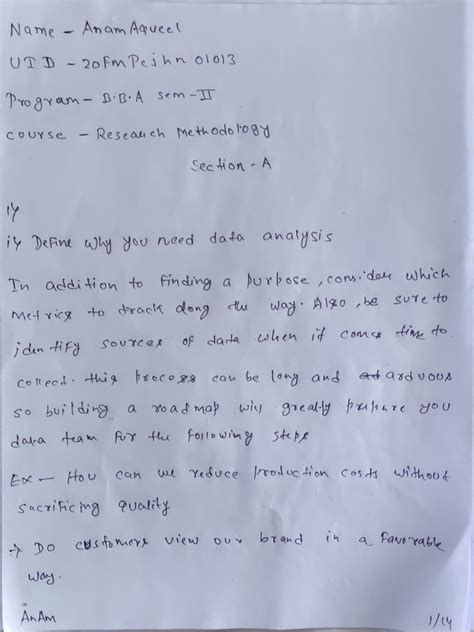 Name - Anam Aqueel
UID - 20FmPcjhn 01013
Program - B.B.A sem - II
Course - Research Methodology
Section - A
1)
i) Define why you need data analysis
In addition to finding a purpose, consider which
Metrics to track along the way. Also, be sure to
identify sources of data when it comes time to
collect. this process can be long and arduous
so building a roadmap will greatly prepare you
data team for the following steps
Ex - How can we reduce production costs without
sacrificing quality
→ Do customers view our brand in a favorable
way.
AnAm
1/14